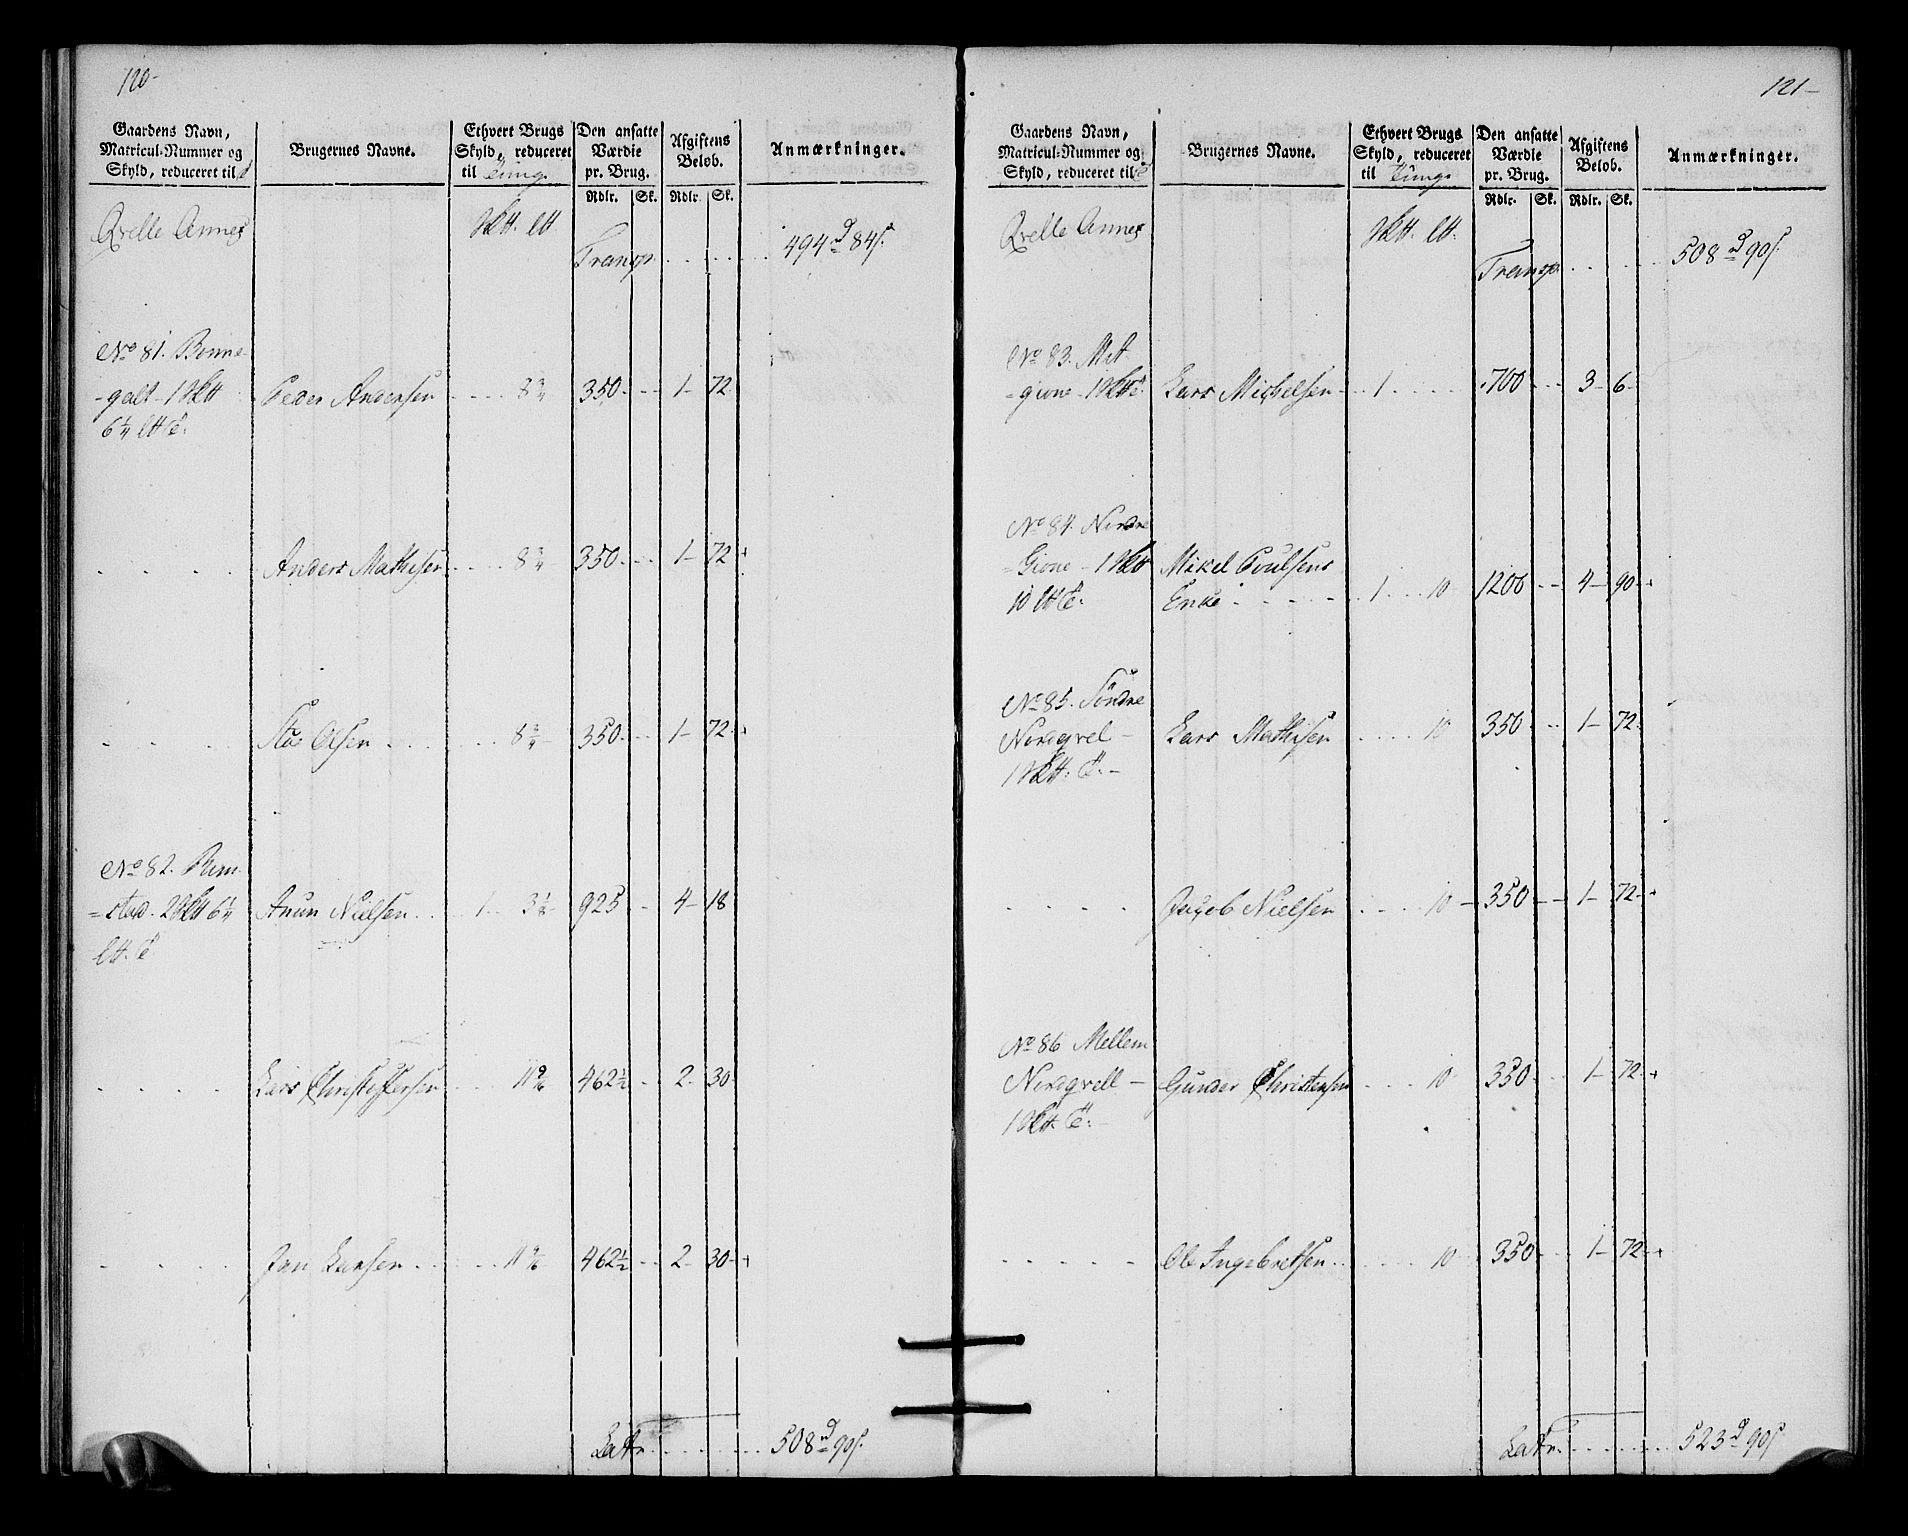 120-
Gaardens Navn,
Matricul-Nummer og
Skyld, reduceret til
Brugernes Navne.
Ethvert Brugs
Skyld, reduceret
til Tunge
Den ansatte
Værdie
pr. Brug.
Rdlr. Sk.
Afgiftens
Beløb.
Rdlr. Sk.
Anmærkninger.
Qvelle Annex
Transp. 494 84
No 81. Bonne-
-galt - 1
6 1/4
Peder Andersen 8 3/4 350 1 - 72
Anders Mathisen 8 3/4 350 1 - 72
Olsen 8 3/4 350 1 - 72
No 82. Rum
=stad. 2 6 1/4
Anun Nielsen 1 3 1/8 925 4 - 18
Lars Christophersen 11 9/16 462 1/2 2 30
Jan Larsen 11 9/16 462 1/2 2 30
Latr. 508 90
121-
Gaardens Navn,
Matricul-Nummer og
Skyld, reduceret til
Brugernes Navne.
Ethvert Brugs
Skyld, reduceret
til Tunge
Den ansatte
Værdie
pr. Brug.
Rdlr. Sk.
Afgiftens
Beløb.
Rdlr. Sk.
Anmærkninger.
Qvelle Annex
Transp. 508 90
No 83. Met
=gione - 1
Lars Michelsen 1 700 3 - 6
No 84. Nordre
=Gione - 1
10
Mikel Poulsens
Enke 1 10 1200 4 - 90
No 85. Söndre
Nordqvel -
1
Lars Mathisen 10 350 1 - 72
Jacob Nielsen 10 350 1 - 72
No 86 Mellem
Nordqvell -
1
Gunder Christensen 10 350 1 - 72
Ole Ingebretsen 10 350 1 - 72
Latr. 523 90